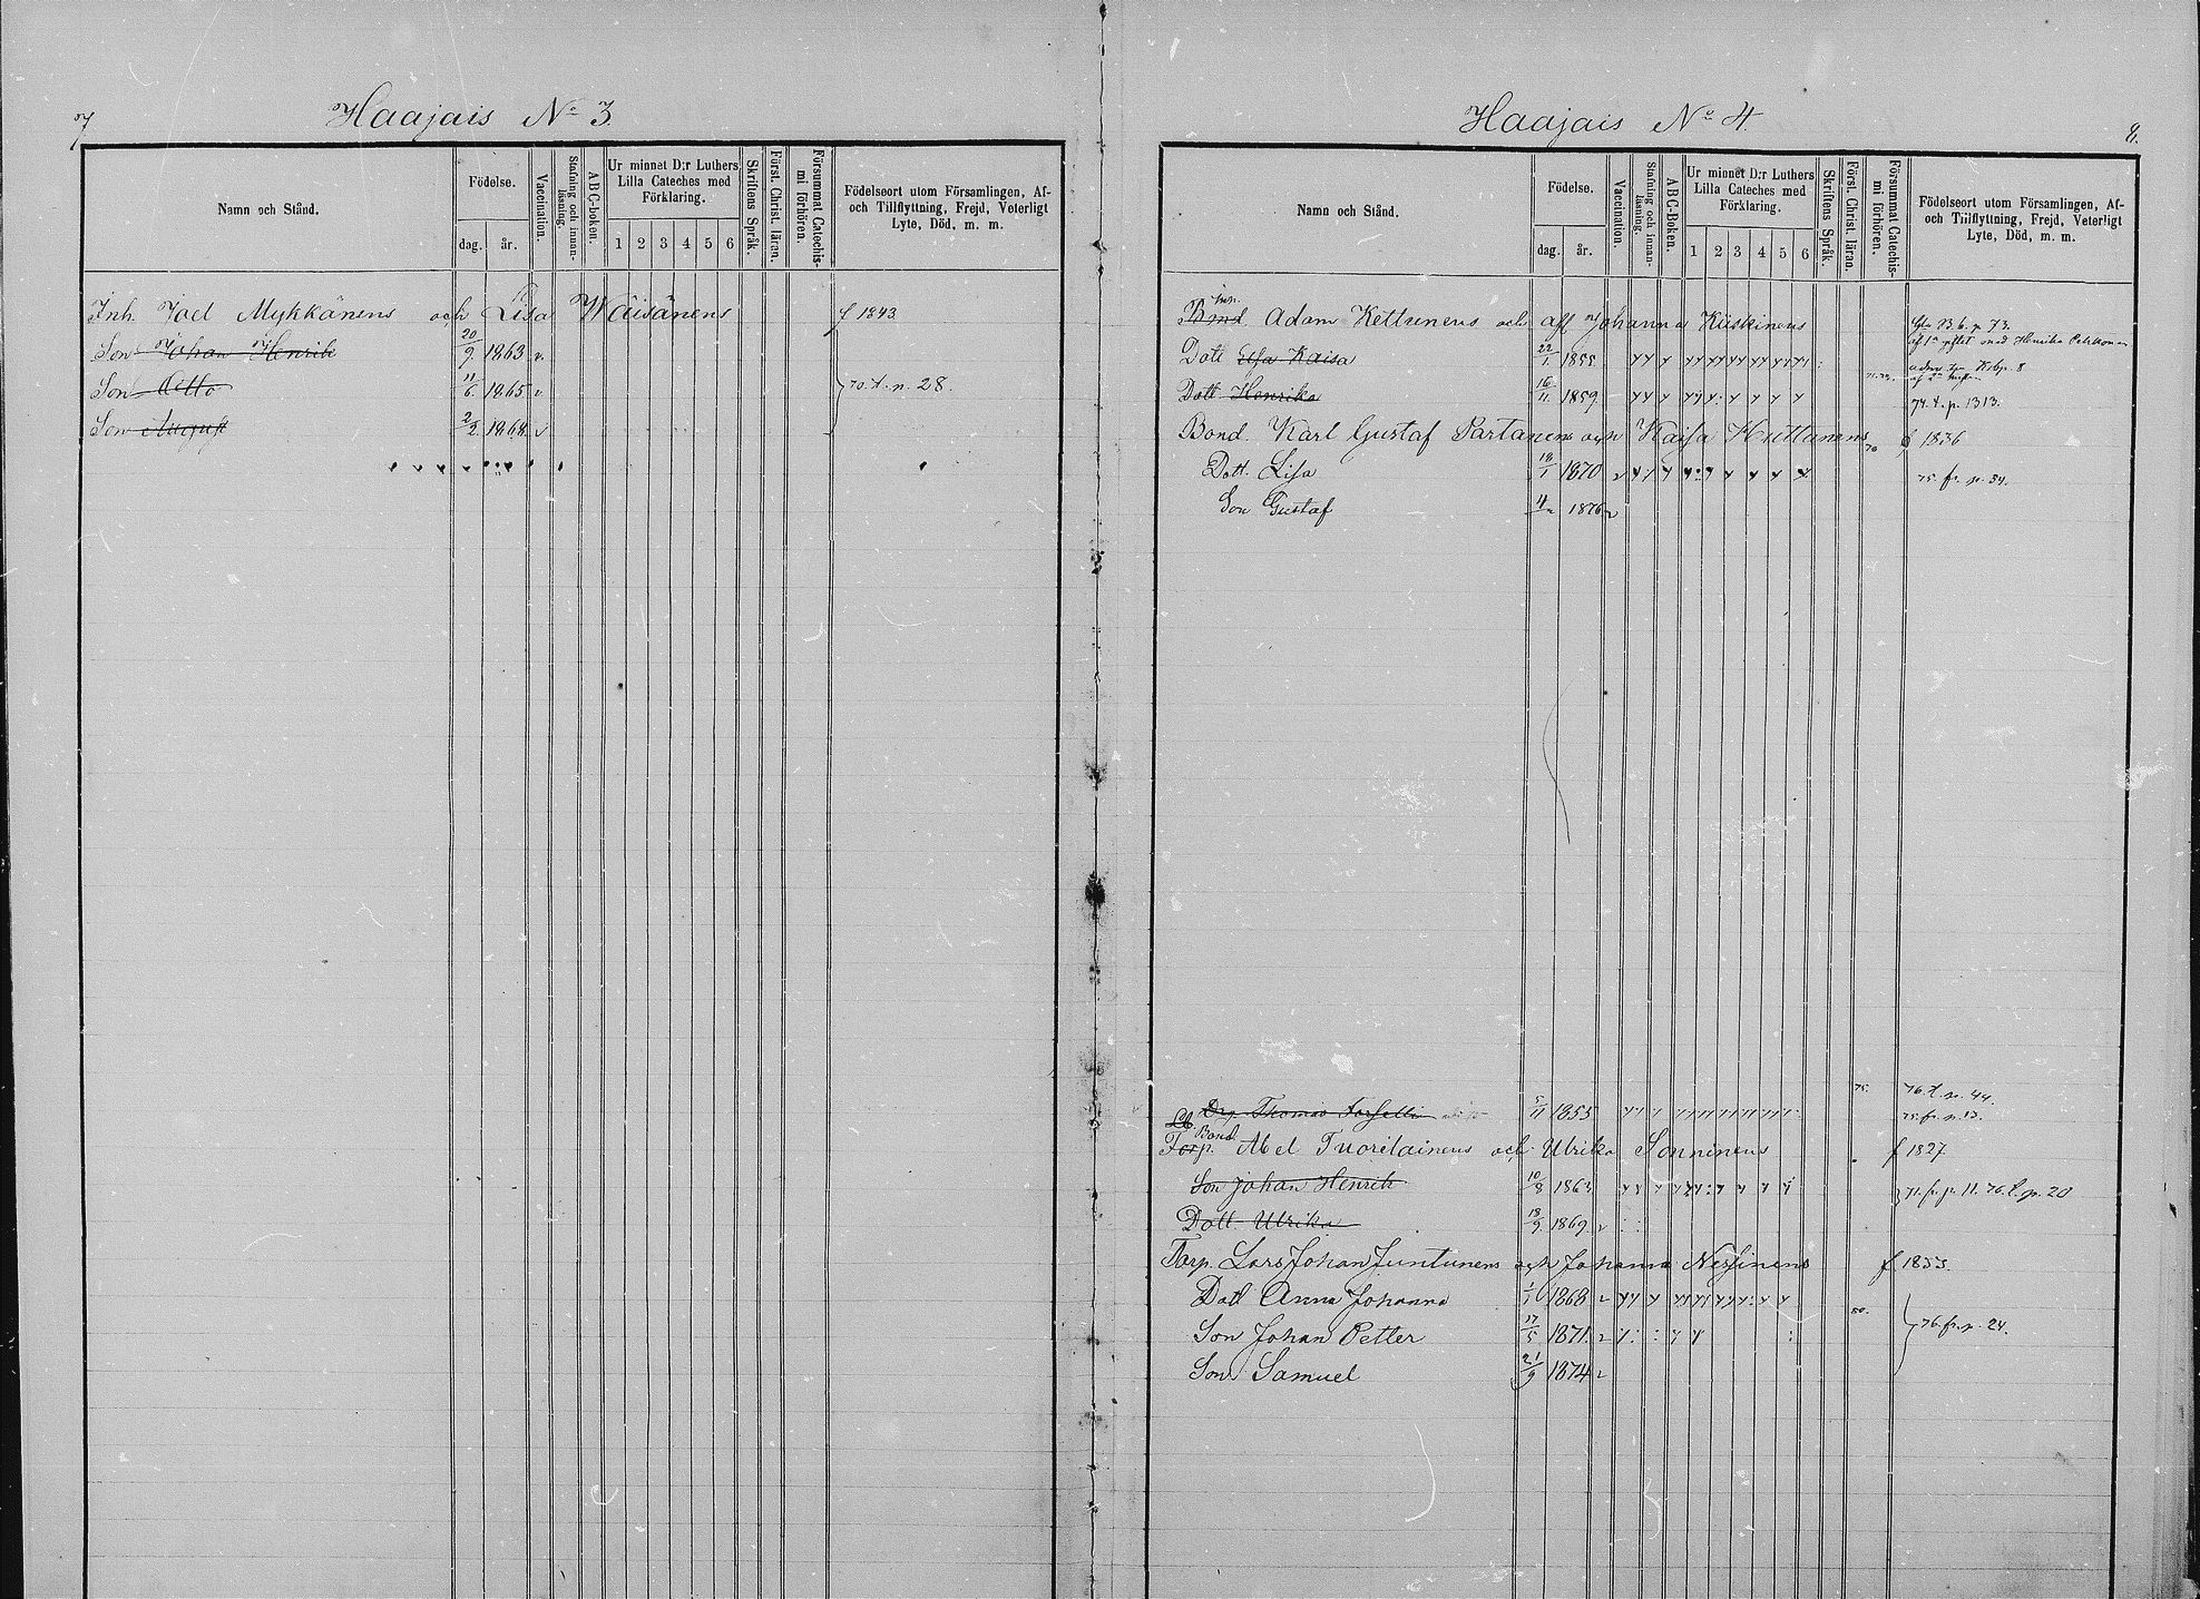 7
Haajais No 3.
Namn och Stånd.
Födelse.
dag. år.
Vaccination.
Stafning och innan-läsning.
ABC-boken.
Ur minnet D:r Luthers
Lilla Cateches med
Förklaring.
1 2 3 4 5 6
Skriftens Språk.
Först. Christ. läran.
Försummat Catechis-
mi förhören.
Födelseort utom Församlingen, Af-
och Tillflyttning, Frejd, Veterligt
Lyte, Död, m. m.
Inh. Joel Mykkänens och Lisa Wäisänens f 1843
Son Johan Henrik 20/9 1863 v.
Son Otto 11/6 1865 v 70. t. p. 28.
Son August 2/2 1868. v
Haajais No 4.
8.
Namn och Stånd.
Födelse.
dag. år.
Vaccination.
Stafning och innan-
läsning.
ABC-Boken.
Ur minnet D:r Luthers
Lilla Cateches med
Förklaring.
1 2 3 4 5 6
Skriftens Språk.
Först. Christ. läran.
Försummat Catechis-
mi förhören.
Födelseort utom Församlingen, Af-
och Tillflyttning, Frejd, Veterligt
Lyte, Död, m. m.
Inh.
Bond. Adam Kettunens och afl Johanna Kiiskinens
Dott Elsa Kaisa 22/1 1855
Dott Henrika 16/11 1859 74. t. p. 1313.
Bond. Karl Gustaf Partanens och Kaisa Huttunens 70 f 1836
Dott. Lisa 18/1 1870 v 75. fr. p. 34.
Son Gustaf 1876 v
75. 76. t. p. 44.
Drg. Thomas 5/11 1855 75. fr. p. 13.
Bond.
Torp. Abel Tuorilainens och Ulrika Sonninens f 1827
Son Johan Henrik 10/8 1863 71. fr. p. 11. 76. t. p. 20
Dott Ulrika 18/9 1869. v
Torp. Lars Johan Juntunens och Johanna Nissinens f 1833.
Dott Anna Johanna 1/1 1868 v
Son Johan Petter 17/5 1871. v 80. 76. fr. p. 24.
Son Samuel 21/9 1874 v